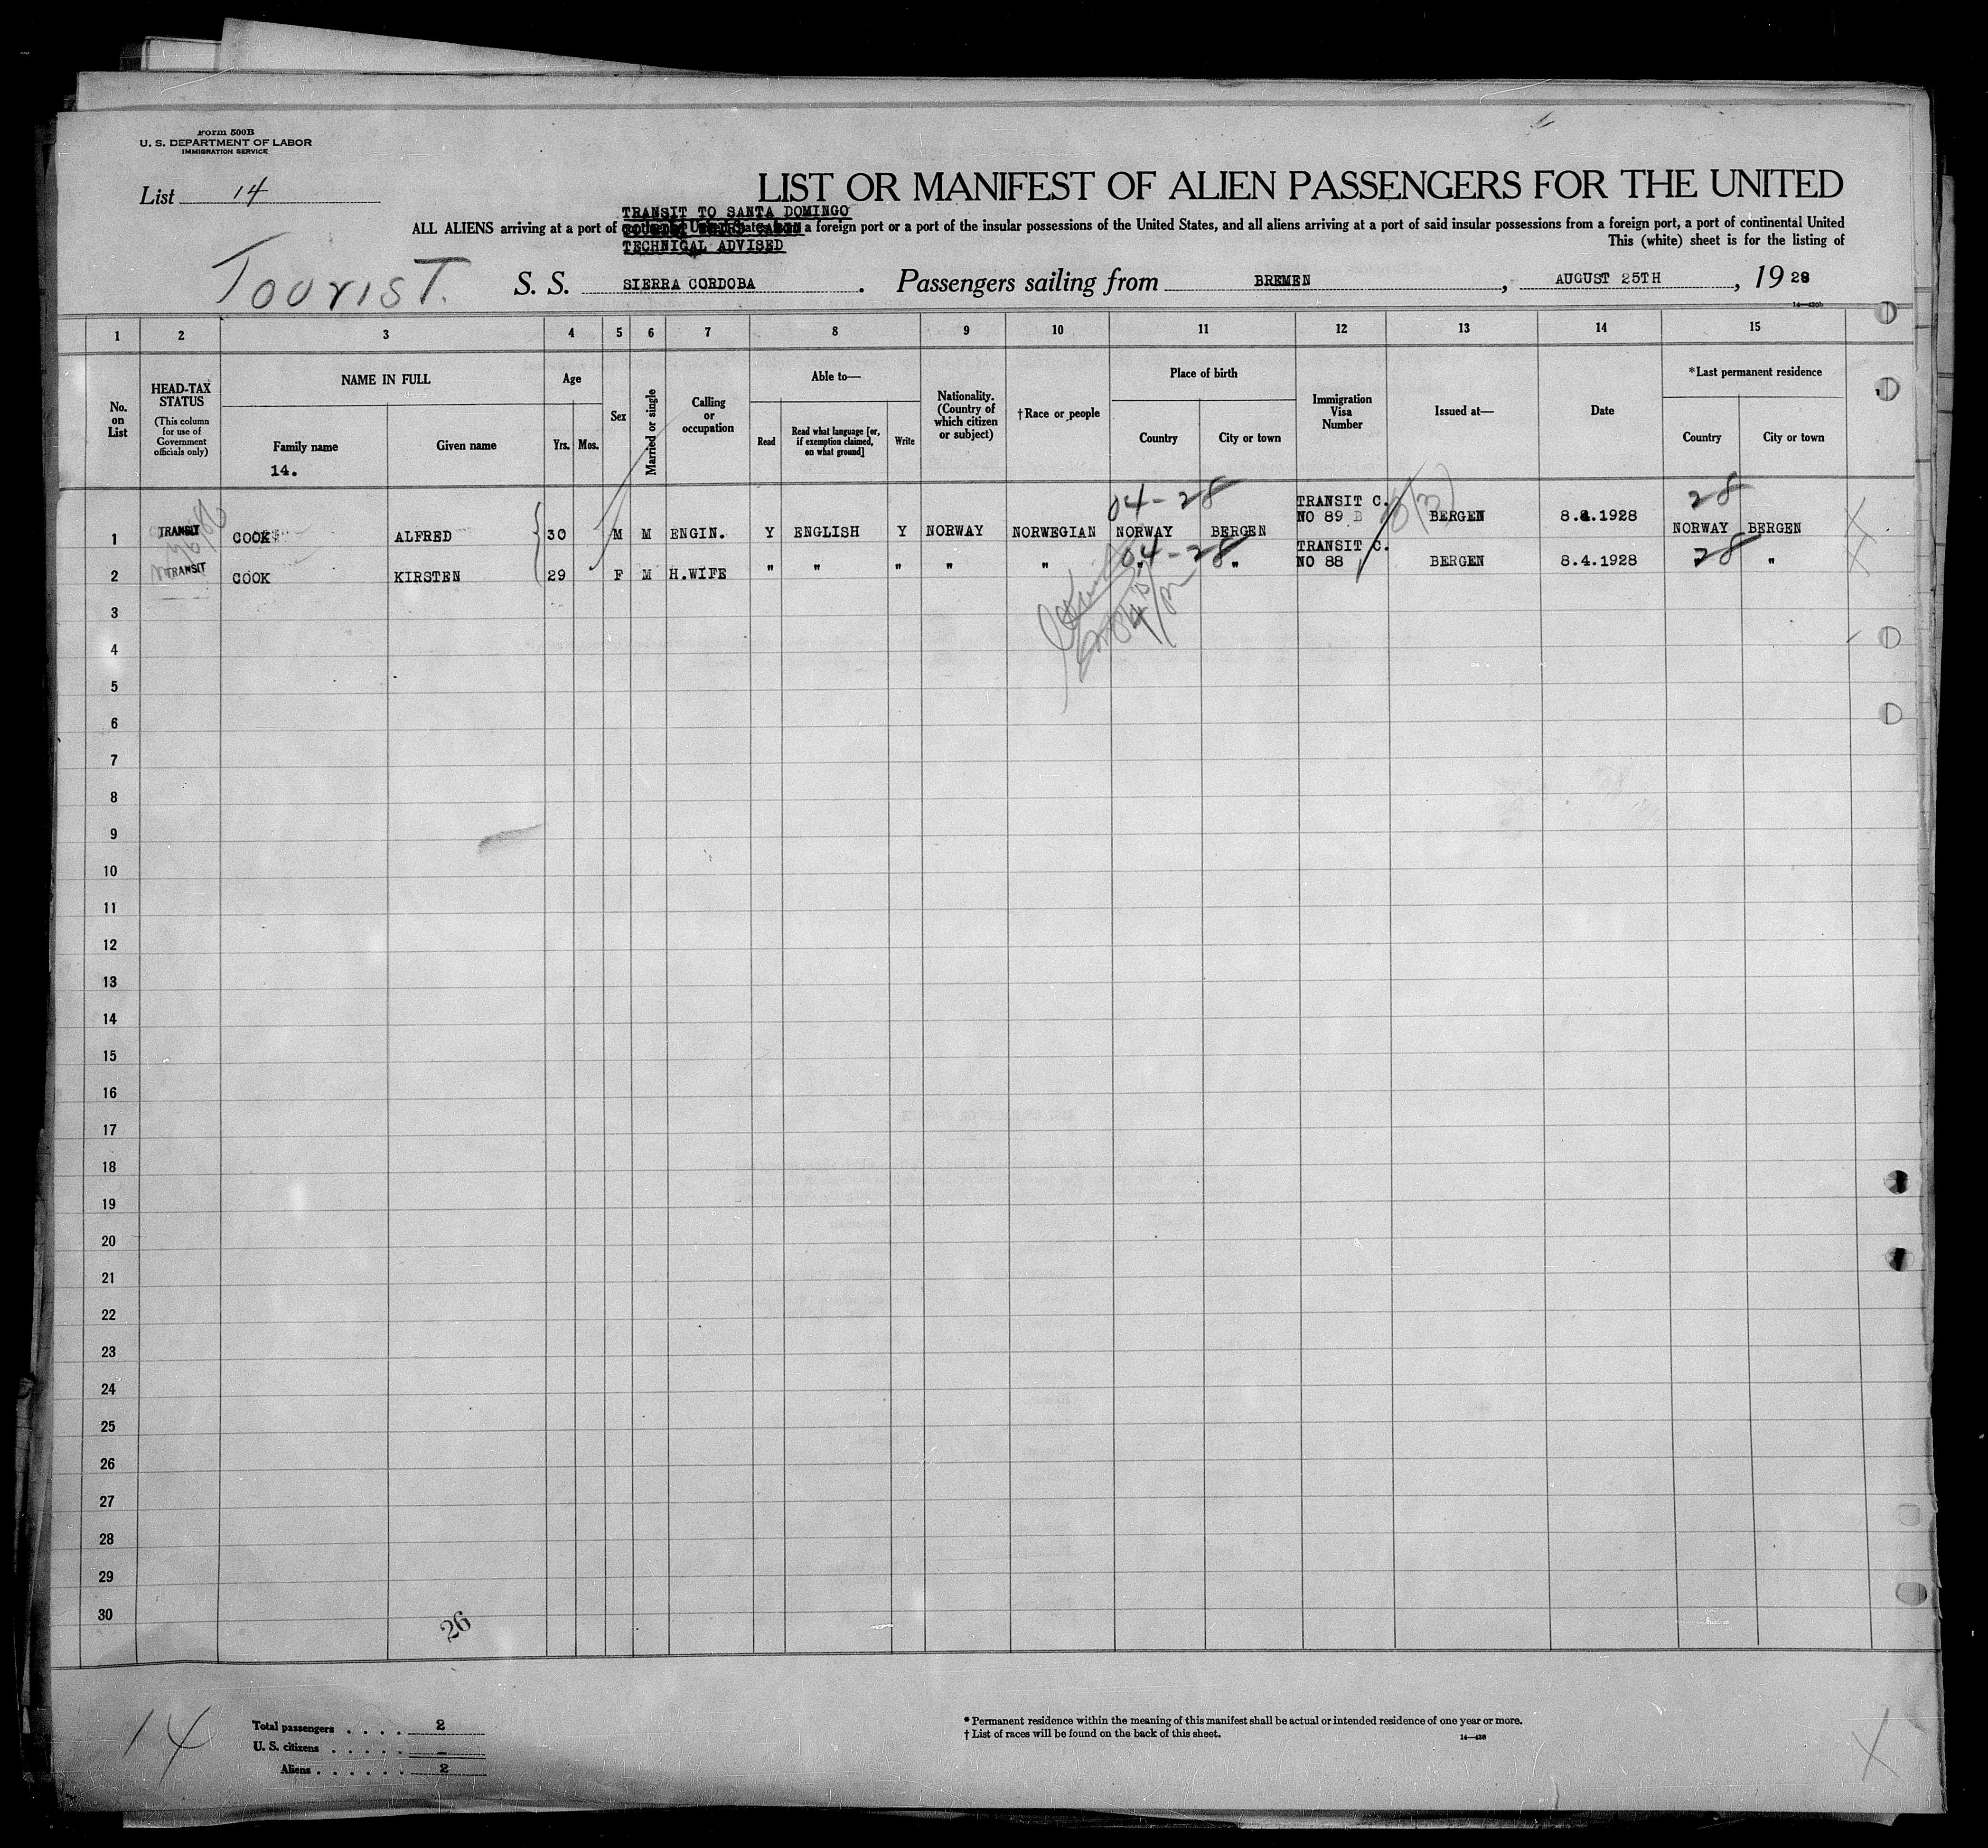 Form 500B
U. S. DEPARTMENT OF LABOR
IMMIGRATION SERVICE
List 14
LIST OR MANIFEST OF ALIEN PASSENGERS FOR THE UNITED
TRANSIT TO SANTA DOMINGO
ALL ALIENS arriving at a port of a foreign port or a port of the insular possessions of the United States, and all aliens arriving at a port of said insular possessions from a foreign port, a port of continental United
TECHNICAL ADVISED
This (white) sheet is for the listing of
TOURIST.
S. S. SIERRA CORDOBA . Passengers sailing from BREMEN , AUGUST 25TH , 19 28
14—430b
1 2 3 4 5 6 7 8 9 10 11 12 13 14 15
No. on List
HEAD-TAX STATUS
(This column for use of Government officials only)
NAME IN FULL
Family name
Given name
14.
Age
Yrs. Mos.
Sex
Married or single
Calling or occupation
Able to—
Read
Read what language [or, if exemption claimed, on what ground]
Write
Nationality. (Country of which citizen or subject)
†Race or people
Place of birth
Country
City or town
Immigration Visa Number
Issued at—
Date
*Last permanent residence
Country
City or town
04-28
TRANSIT C.
28
1 TRANSIT COOK ALFRED 30 M M ENGIN. Y ENGLISH Y NORWAY NORWEGIAN NORWAY BERGEN NO 89 B BERGEN 8.4.1928 NORWAY BERGEN
04-28
TRANSIT C.
28
2 TRANSIT COOK KIRSTEN 29 F M H.WIFE " " " " " " " NO 88 BERGEN 8.4.1928 " "
3
4
5
6
7
8
9
10
11
12
13
14
15
16
17
18
19
20
21
22
23
24
25
26
27
28
29
30
26
14
Total passengers . . . . 2
U. S. citizens . . . . . –
Aliens . . . . . . 2
* Permanent residence within the meaning of this manifest shall be actual or intended residence of one year or more.
† List of races will be found on the back of this sheet.
14—430
X